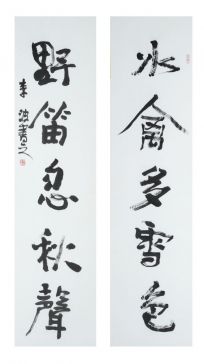 水禽多雪色
野笛忽秋聲
李波書之